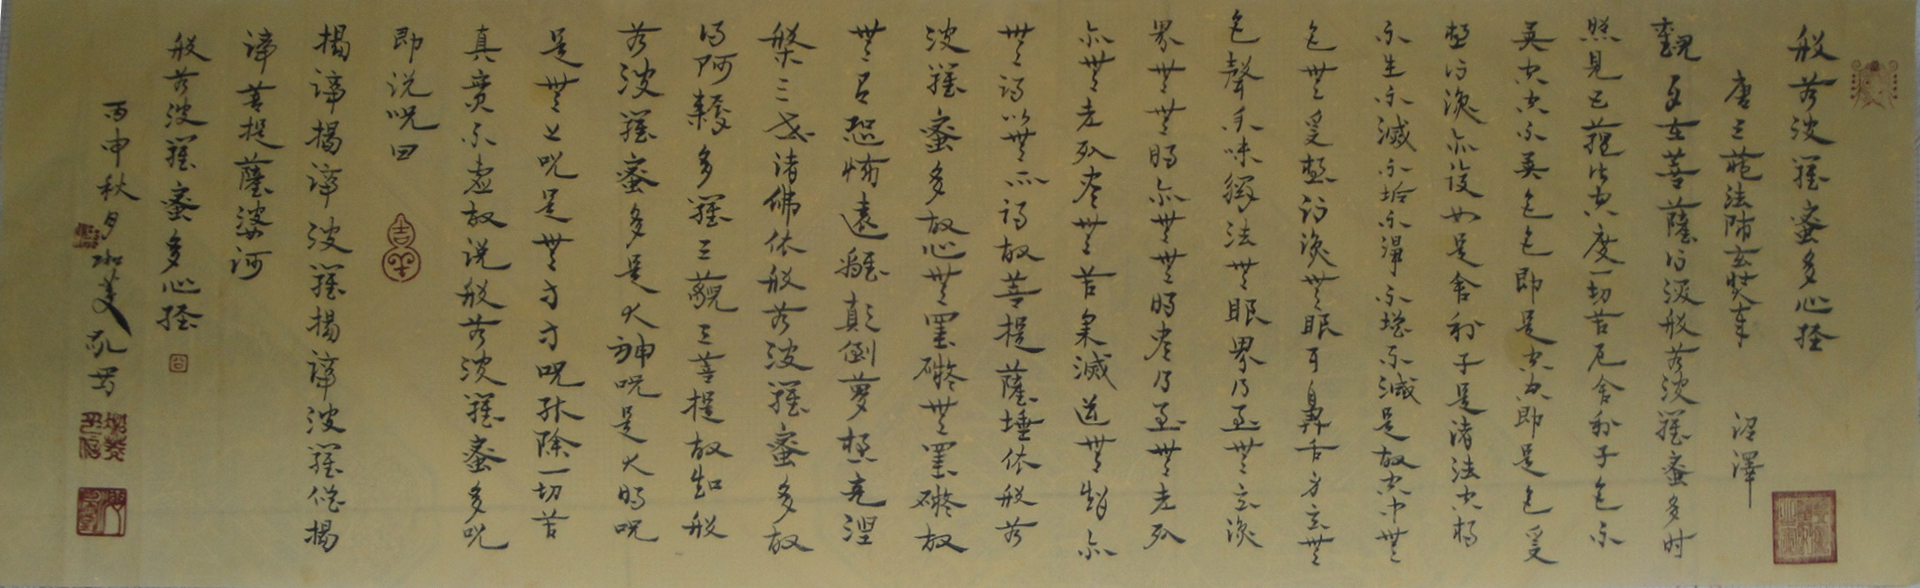 般若波羅蜜多心經
唐三藏法師玄奘奉 沼譯
觀自在菩薩行深般若波羅蜜多时
照見五蘊皆空度一切苦厄舍利子色不
異空空不異色色即是空空即是色受
想行識亦復如是舍利子是诸法空相
不生不滅不垢不淨不增不減是故空中無
色無受想行識無眼耳鼻舌身意無
色聲香味觸法無眼界乃至無意識
界無無明亦無無明盡乃至無老死
亦無老死盡無苦集滅道無智亦
無得以無所得故菩提薩埵依般若
波羅蜜多故心無罣礙無罣礙故
無有恐怖遠離顛倒夢想究涅
槃三世诸佛依般若波羅蜜多故
得阿耨多羅三藐三菩提故知般
若波羅蜜多是大神呪是大明呪
是無上呪是無等等呪能除一切苦
真實不虛故说般若波羅蜜多呪
即说呪曰
揭諦揭諦波羅揭諦波羅僧揭
諦菩提薩婆訶
般若波羅蜜多心經
丙申秋月